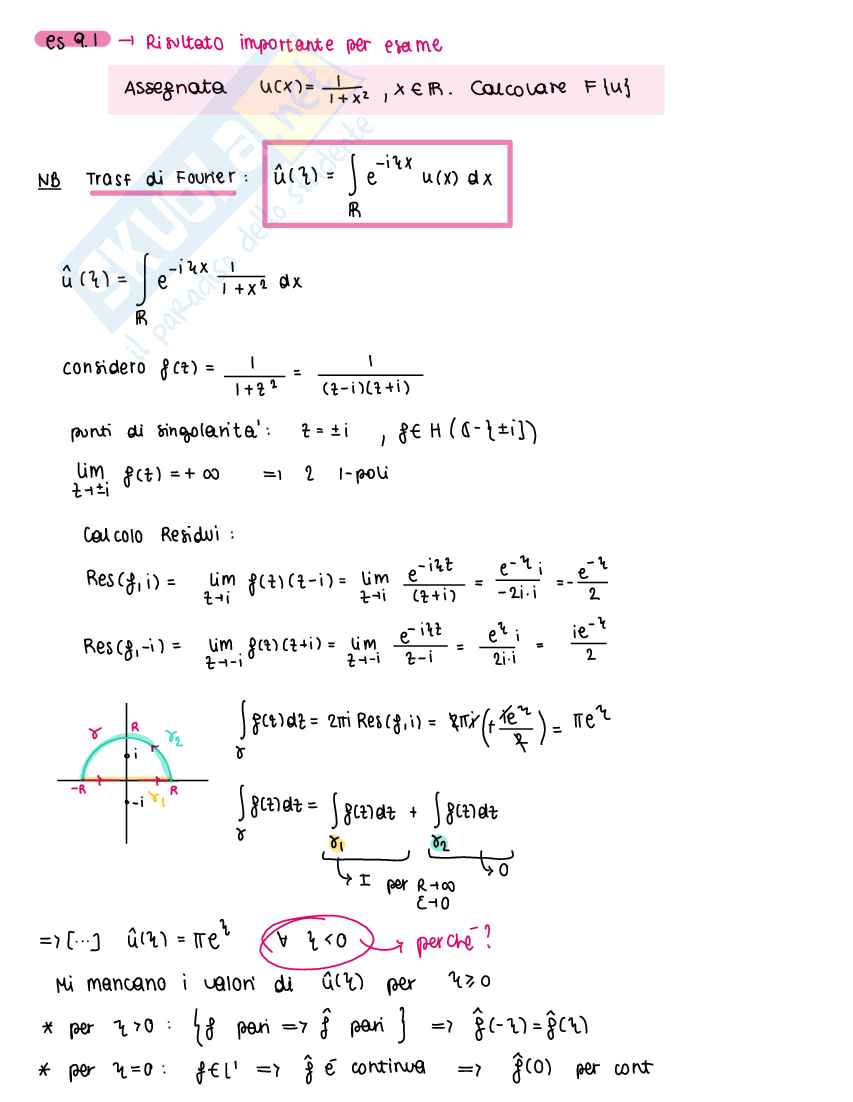 es 9.1 → Risultato importante per esame
Assegnata u(x) = 1/(1+x²) , x ∈ ℝ. Calcolare F{u}
NB Trasf di Fourier: û(ξ) = ∫_ℝ e^{-iξx} u(x) dx
û(ξ) = ∫_ℝ e^{-iξx} 1/(1+x²) dx
considero f(z) = 1/(1+z²) = 1/((z-i)(z+i))
punti di singolarita': z = ±i , f ∈ H(ℂ-{±i})
lim_{z→±i} f(z) = +∞ => 2 1-poli
Calcolo Residui:
Res(f,i) = lim_{z→i} f(z)(z-i) = lim_{z→i} e^{-iξz}/(z+i) = e^{-ξ}i/(-2i·i) = -e^{-ξ}/2
Res(f,-i) = lim_{z→-i} f(z)(z+i) = lim_{z→-i} e^{-iξz}/(z-i) = e^{ξ}i/(2i·i) = ie^{-ξ}/2
γ R γ2 i -R γ1 R -i
∫_γ f(z)dz = 2πi Res(f,i) = 2πi(+ie^{ξ}/2) = πe^{ξ}
∫_γ f(z)dz = ∫_{γ1} f(z)dz + ∫_{γ2} f(z)dz
→ I per R→∞ → 0
ε→0
=> [...] û(ξ) = πe^{ξ} ∀ ξ<0 → perchè?
Mi mancano i valori di û(ξ) per ξ ≥ 0
* per ξ>0 : {f pari => f̂ pari} => f̂(-ξ) = f̂(ξ)
* per ξ=0 : f∈L¹ => f̂ é continua => f̂(0) per cont
SKUOLA.net
il paradiso dello studente